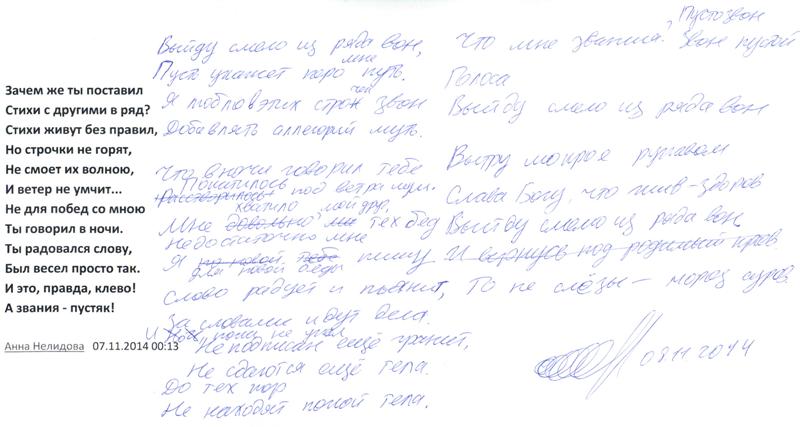 Зачем же ты поставил
Стихи с другими в ряд?
Стихи живут без правил,
Но строчки не горят,
Не смоет их волною,
И ветер не умчит...
Не для побед со мною
Ты говорил в ночи.
Ты радовался слову,
Был весел просто так.
И это, правда, клево!
А звания - пустяк!
Анна Нелидова 07.11.2014 00:13
Выйду смело из ряда вон,
мне
Пусть укажет перо путь.
Я люблю этих строк звон
Добавлять аллегорий муть.
Что в ночи говорил тебе
Покатилось под ветра шум.
хватило мой друг,
Мне довольно тех бед
Недостаточно мне
Я пишу
для новой беды
Слово радует и пьянит,
За словами идут дела.
И пока не упал
Не подписан ещё гранит,
Не сдаются ещё тела.
До тех пор
Не находят покой тела.
Пустозвон
Что мне звания? Звон пустой
Голоса
Выйду смело из ряда вон
Вытру мокрое рукавом
Слава Богу, что жив-здоров
Выйду смело из ряда вон
И вернусь под родимый кров.
То не слёзы - мороз суров.
08 11 2014